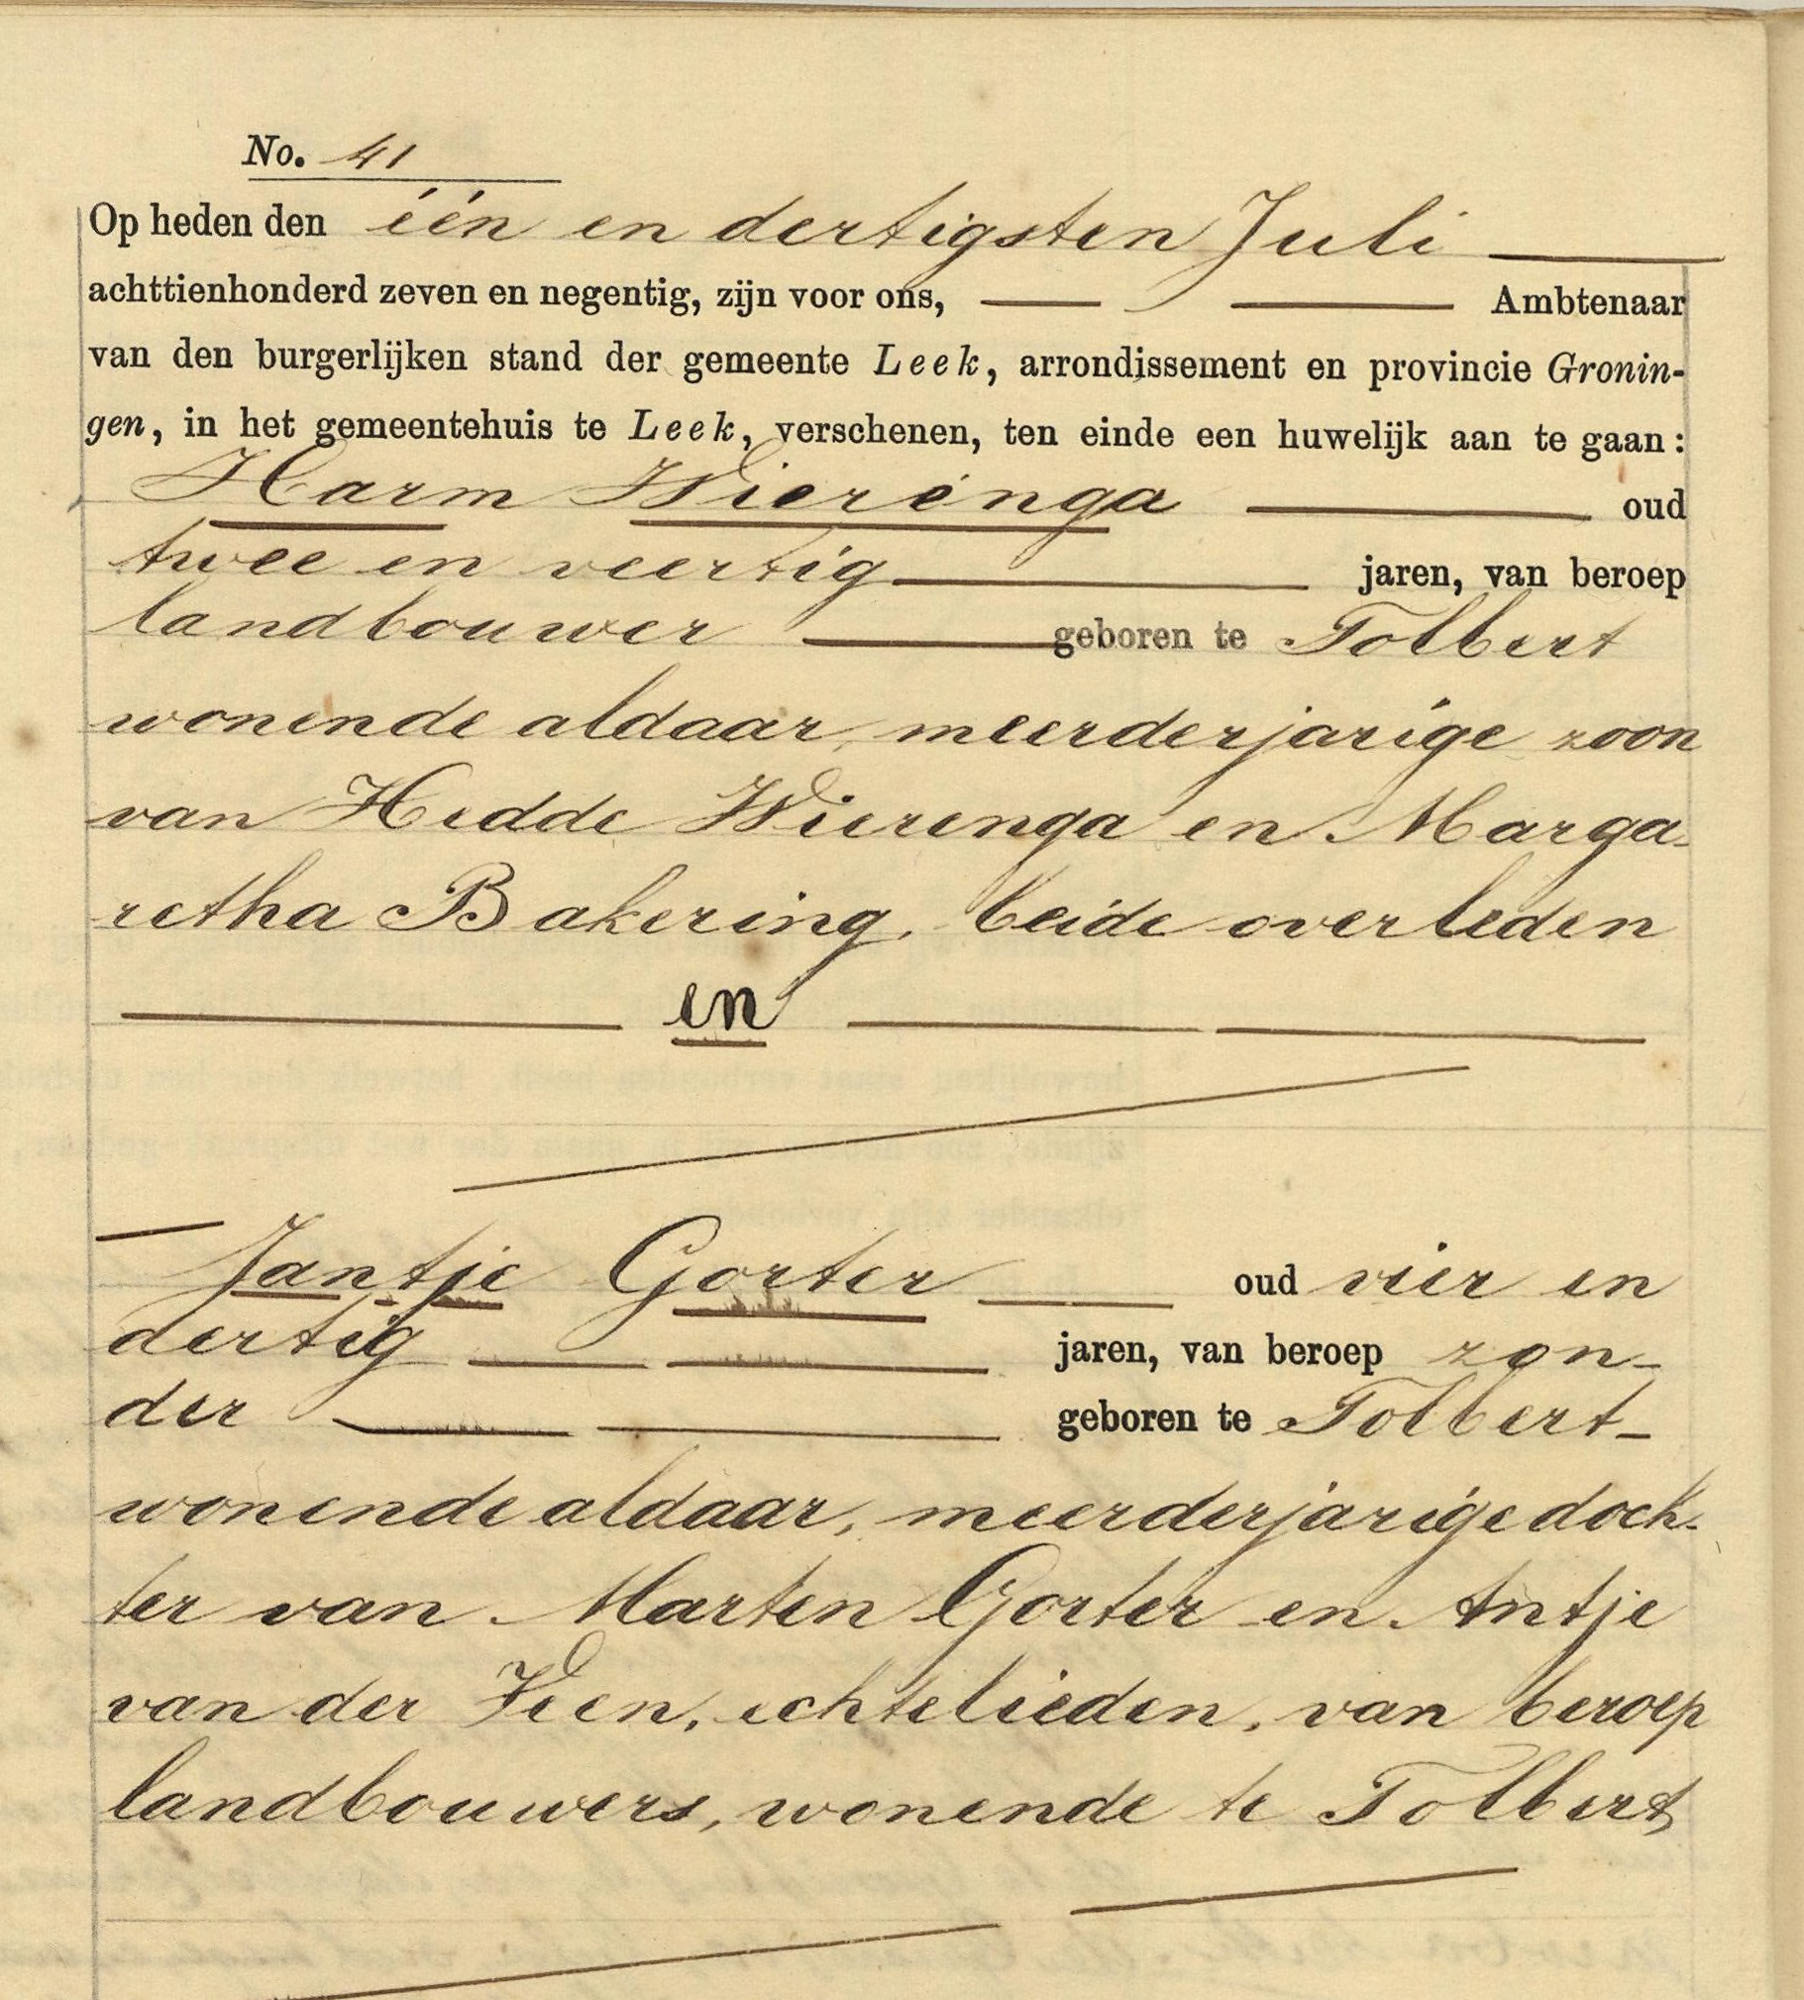 No. 41
Op heden den één en dertigsten Juli
achttienhonderd zeven en negentig, zijn voor ons, Ambtenaar
van den burgerlijken stand der gemeente Leek, arrondissement en provincie Gronin-
gen, in het gemeentehuis te Leek, verschenen, ten einde een huwelijk aan te gaan:
Harm Wierenga oud
twee en veertig jaren, van beroep
landbouwer geboren te Tolbert
wonende aldaar, meerderjarige zoon
van Hedde Wierenga en Marga-
retha Bakering, beide overleden
en
Jantje Gorter oud vier en
dertig jaren, van beroep zon-
der geboren te Tolbert
wonende aldaar, meerderjarige doch-
ter van Marten Gorter en Antje
van der Veen, echtelieden, van beroep
landbouwers, wonende te Tolbert